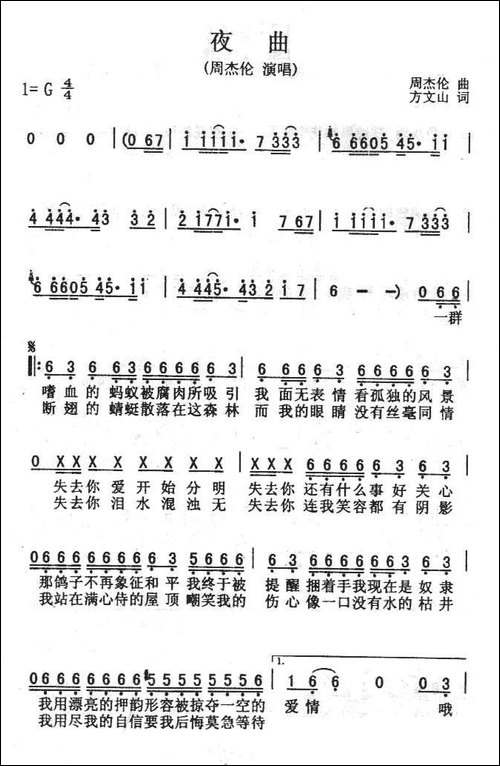 夜 曲
(周杰伦 演唱)
1= G 4/4
周杰伦 曲
方文山 词
0 0 0 | (0 67 | i i i i i· 7 333 | 6 6605 45· i i |
4 444· 43 3 2 | 2 i77i· i 7 67 | i i i i i· 7 333 |
6 6605 45· i i | 4 4445· 43 2 i 7 | 6 – –) 0 6 6 |
一群
𝄋
‖: 6 3 6 6 6 6 6 6 6 3 | 6 3 6 6 6 3 6 6 6 6 6 3 |
嗜血的 蚂蚁被腐肉所吸引 我 面无表 情 看孤独的风 景
断翅的 蜻蜓散落在这森林 而我的眼 睛 没有丝毫同 情
0 X X X X X X X X | X X X 6 6 6 6 6 6 3 6 3 |
失去你 爱开始分明 失去你 还有什么事好关心
失去你 泪水混浊无 失去你 连我笑容都有阴影
那鸽子不再象征和 平 我终于被 提醒捆着手我现在是 奴隶
我站在满心侍的屋 顶 嘲笑我的 伤心像一口没有水的 枯井
1.
1 6 6 0 0 3
我用漂亮的押韵形容被掠夺一空的 爱 情 哦
我用尽我的自信要我后悔莫急等待